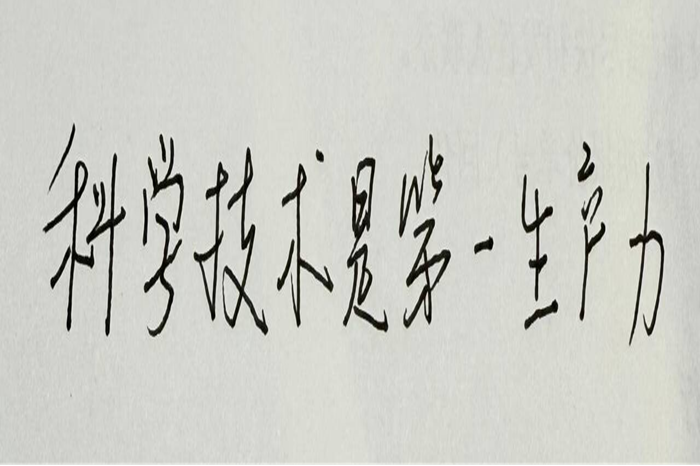 科学技术是第一生产力